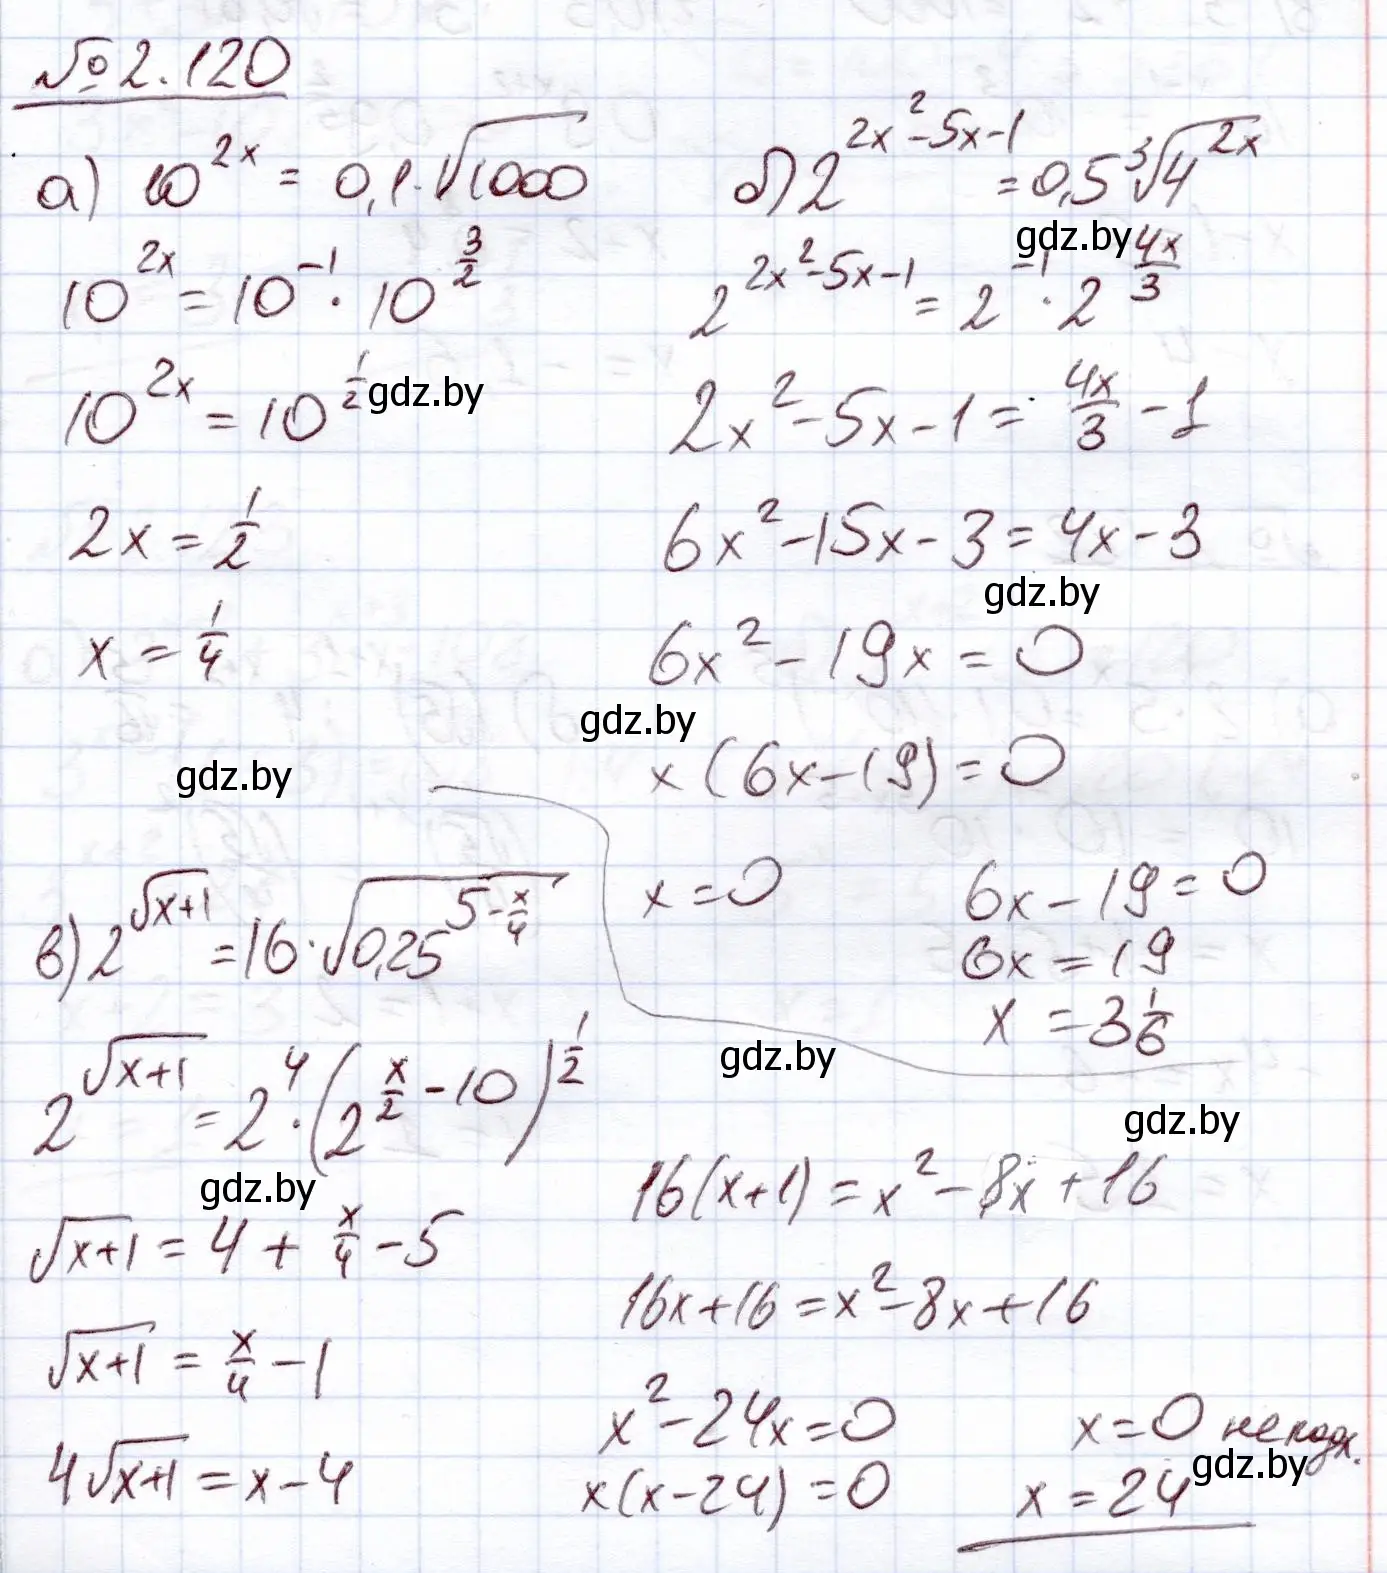 № 2.120
а) 10^{2x} = 0,1·√1000
10^{2x} = 10^{-1} · 10^{3/2}
10^{2x} = 10^{1/2}
gdz.by
2x = 1/2
x = 1/4
gdz.by
б) 2^{2x²-5x-1} = 0,5 ∛4^{2x}
gdz.by
2^{2x²-5x-1} = 2^{-1} · 2^{4x/3}
2x² - 5x - 1 = 4x/3 - 1
6x² - 15x - 3 = 4x - 3
gdz.by
6x² - 19x = 0
gdz.by
x (6x - 19) = 0
x = 0 6x - 19 = 0
6x = 19
x = 3 1/6
gdz.by
в) 2^{√(x+1)} = 16 · √(0,25^{5 - x/4})
2^{√(x+1)} = 2^4 · (2^{x/2 - 10})^{1/2}
gdz.by
√(x+1) = 4 + x/4 - 5
√(x+1) = x/4 - 1
4√(x+1) = x - 4
gdz.by
16(x+1) = x² - 8x + 16
16x + 16 = x² - 8x + 16
x² - 24x = 0
x(x - 24) = 0
x = 0 не подх.
gdz.by
x = 24